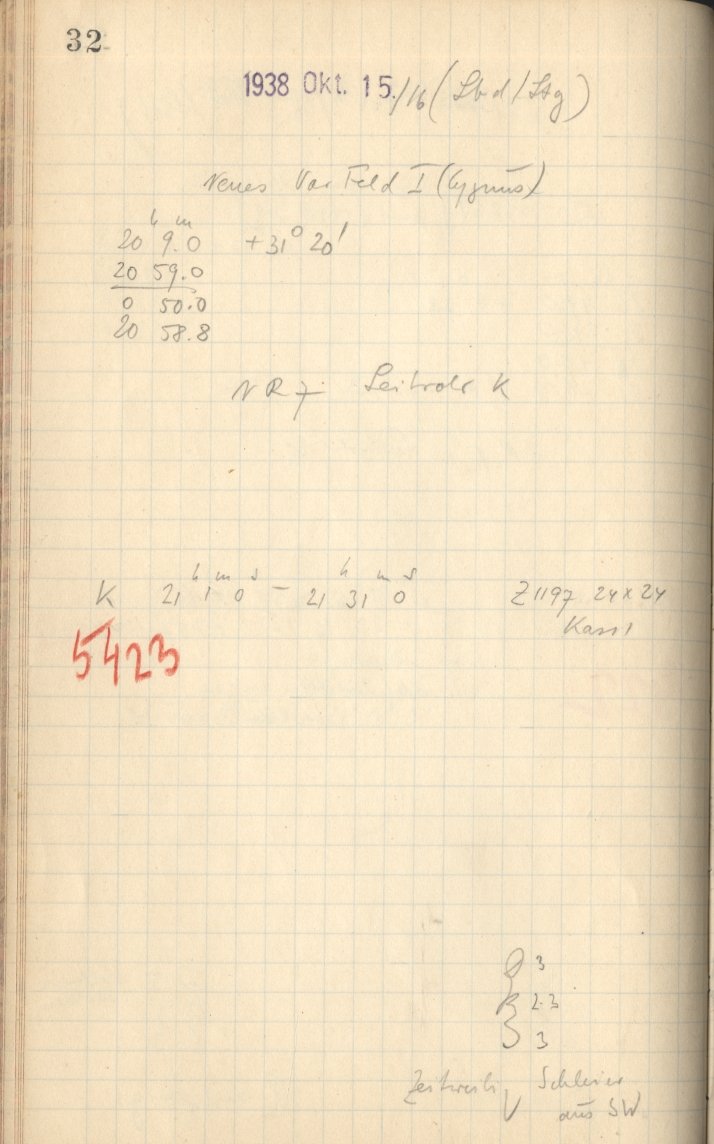 32
1938 Okt. 15./16 (Sbd/Stg)
Neues Var Feld I (Cygnus)
h m
20 9.0 +31° 20'
20 59.0
0 50.0
20 58.8
NR 7 Leitrohr K
K 21 h 1 m 0 s – 21 h 31 m 0 s Z 1197 24x24
Kass 1
5423
3
R 2-3
S 3
Zeitweilig Schleier
aus SW